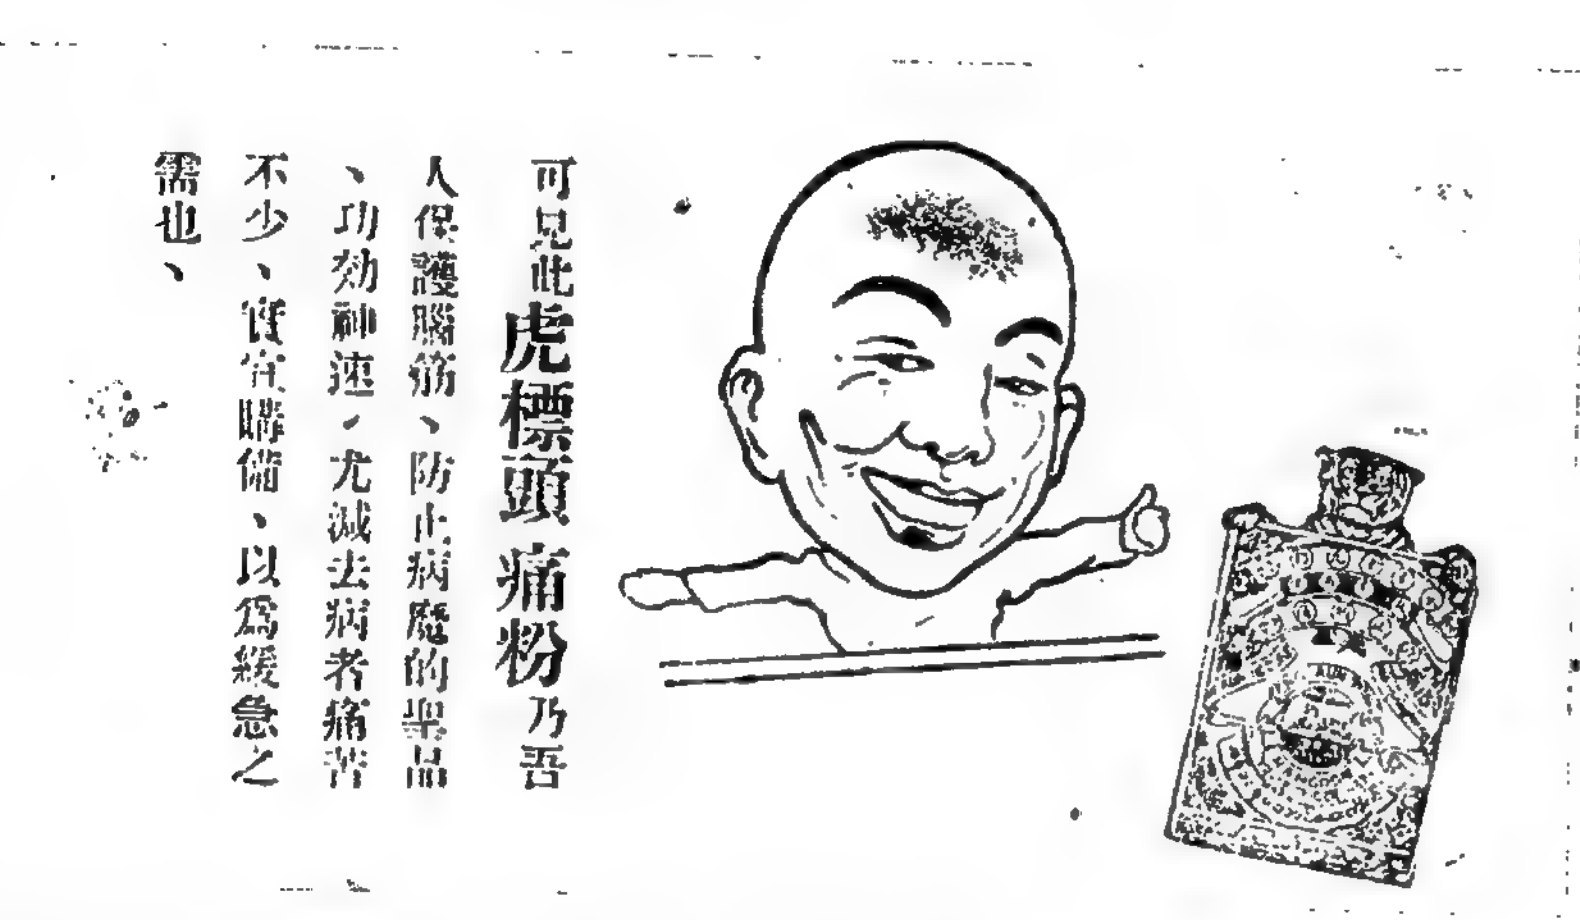 可見此虎標頭痛粉乃吾
人保護腦筋、防止病魔的聖品
、功効神速、尤減去病者痛苦
不少、實宜購備、以爲緩急之
需也、